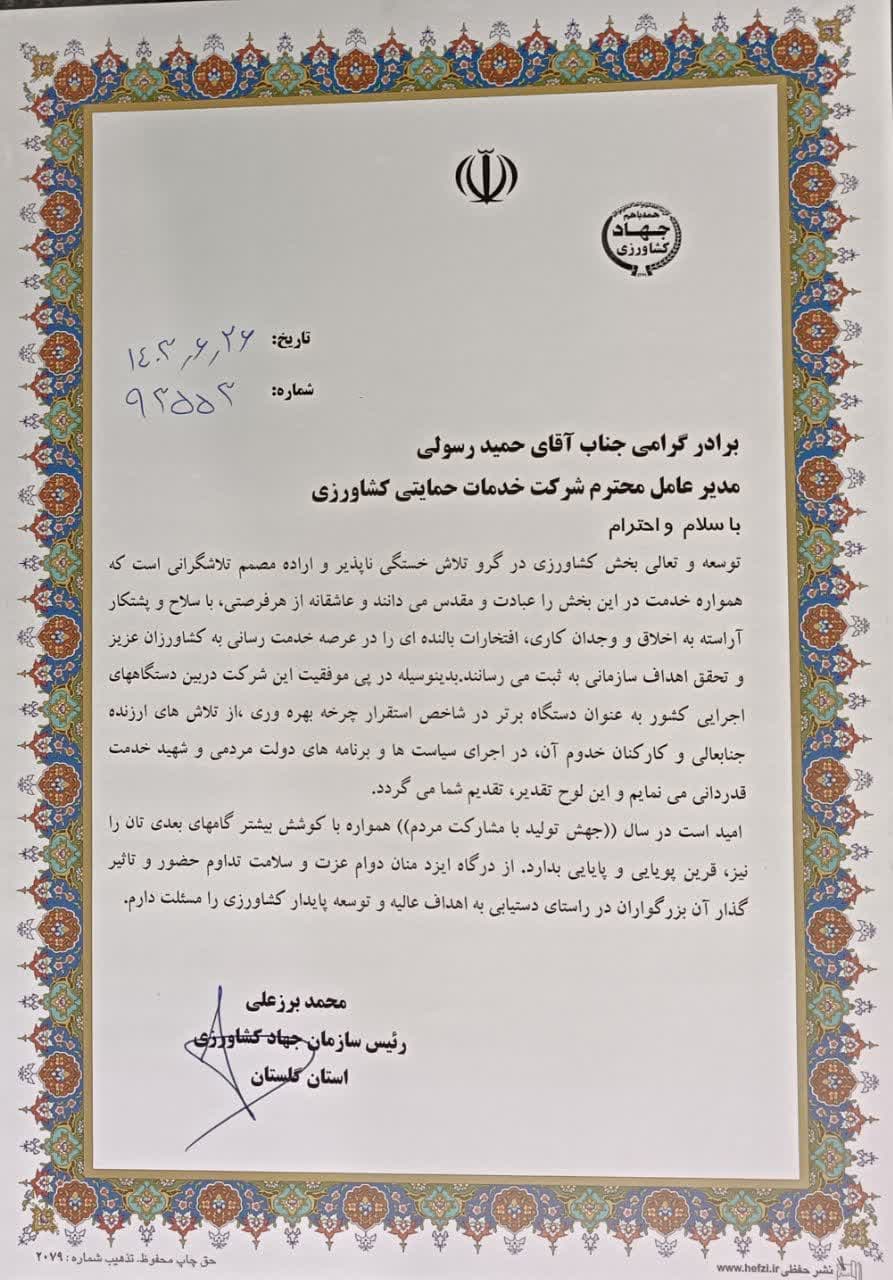 همه با هم
جهاد
کشاورزی
تاریخ: ۱۴۰۳٫۶٫۲۶
شماره: ۹۳۵۵۳
برادر گرامی جناب آقای حمید رسولی
مدیر عامل محترم شرکت خدمات حمایتی کشاورزی
با سلام و احترام
توسعه و تعالی بخش کشاورزی در گرو تلاش خستگی ناپذیر و اراده مصمم تلاشگرانی است که
همواره خدمت در این بخش را عبادت و مقدس می دانند و عاشقانه از هرفرصتی، با سلاح و پشتکار
آراسته به اخلاق و وجدان کاری، افتخارات بالنده ای را در عرصه خدمت رسانی به کشاورزان عزیز
و تحقق اهداف سازمانی به ثبت می رسانند.بدینوسیله در پی موفقیت این شرکت دربین دستگاههای
اجرایی کشور به عنوان دستگاه برتر در شاخص استقرار چرخه بهره وری ،از تلاش های ارزنده
جنابعالی و کارکنان خدوم آن، در اجرای سیاست ها و برنامه های دولت مردمی و شهید خدمت
قدردانی می نمایم و این لوح تقدیر، تقدیم شما می گردد.
امید است در سال ((جهش تولید با مشارکت مردم)) همواره با کوشش بیشتر گامهای بعدی تان را
نیز، قرین پویایی و پایایی بدارد. از درگاه ایزد منان دوام عزت و سلامت تداوم حضور و تاثیر
گذار آن بزرگواران در راستای دستیابی به اهداف عالیه و توسعه پایدار کشاورزی را مسئلت دارم.
محمد برزعلی
رئیس سازمان جهاد کشاورزی
استان گلستان
حق چاپ محفوظ. تذهیب شماره: ۲۰۷۹
نشر حفظی www.hefzi.ir